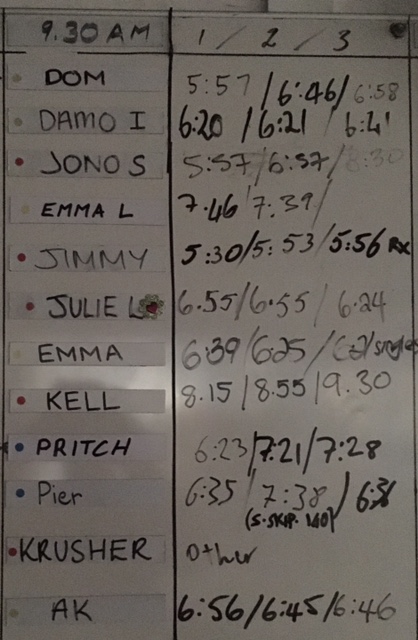 9.30 AM 1 / 2 / 3
DOM 5:57 / 6:46 / 6:58
DAMO I 6:20 / 6:21 / 6:41
JONO S 5:57 / 6:57 / 8:30
EMMA L 7.46 / 7:39 /
JIMMY 5:30 / 5:53 / 5:56 RX
JULIE L 6.55 / 6.55 / 6.24
EMMA 6:39 / 6:25 / singles
KELL 8.15 / 8.55 / 9.30
PRITCH 6:23 / 7:21 / 7:28
Pier 6:35 / 7:38 / 6:31
(S.SKIP. 140)
KRUSHER Other
AK 6:56 / 6:45 / 6:46